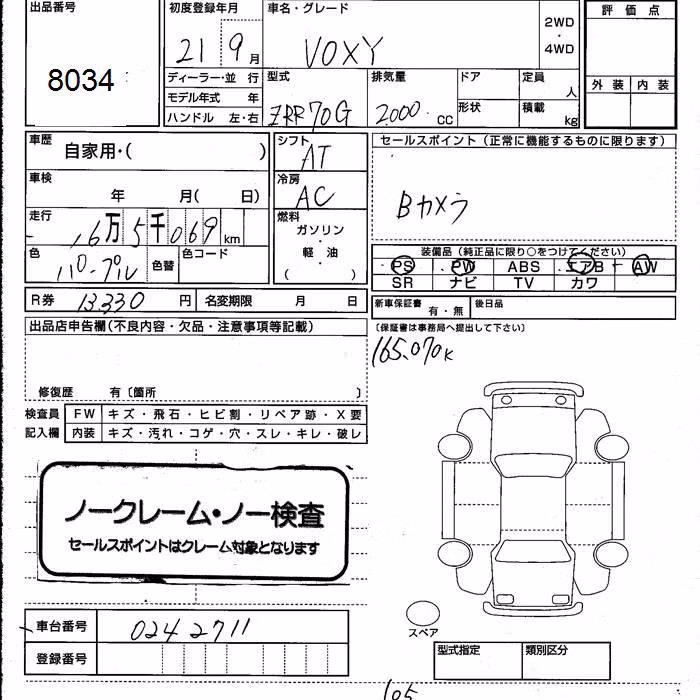 出品番号
8034
初度登録年月
21 9月
車名・グレード
VOXY
2WD
・
4WD
評価点
外装 内装
ディーラー・並 行
モデル年式 年
ハンドル 左・右
型式
ZRR70G
排気量
2000 cc
ドア
形状
定員
人
積載
kg
車歴
自家用・( )
車検
年 月( 日)
走行
16万5千069km
色
パープル
色替
色コード
シフト
AT
冷房
AC
燃料
ガソリン
・
軽 油
( )
セールスポイント (正常に機能するものに限ります)
Bカメラ
装備品 (純正品に限り○をつけてください)
PS PW ABS エアB AW
SR ナビ TV カワ
R券 13,330 円 名変期限 月 日
新車保証書 有・無 後日品
(保証書は事務局へ提出して下さい)
165,070K
出品店申告欄(不良内容・欠品・注意事項等記載)
修復歴 有〔箇所 〕
検査員 FW キズ・飛石・ヒビ割・リペア跡・X要
記入欄 内装 キズ・汚れ・コゲ・穴・スレ・キレ・破レ
ノークレーム・ノー検査
セールスポイントはクレーム対象となります
車台番号 0242711
登録番号
スペア
型式指定 類別区分